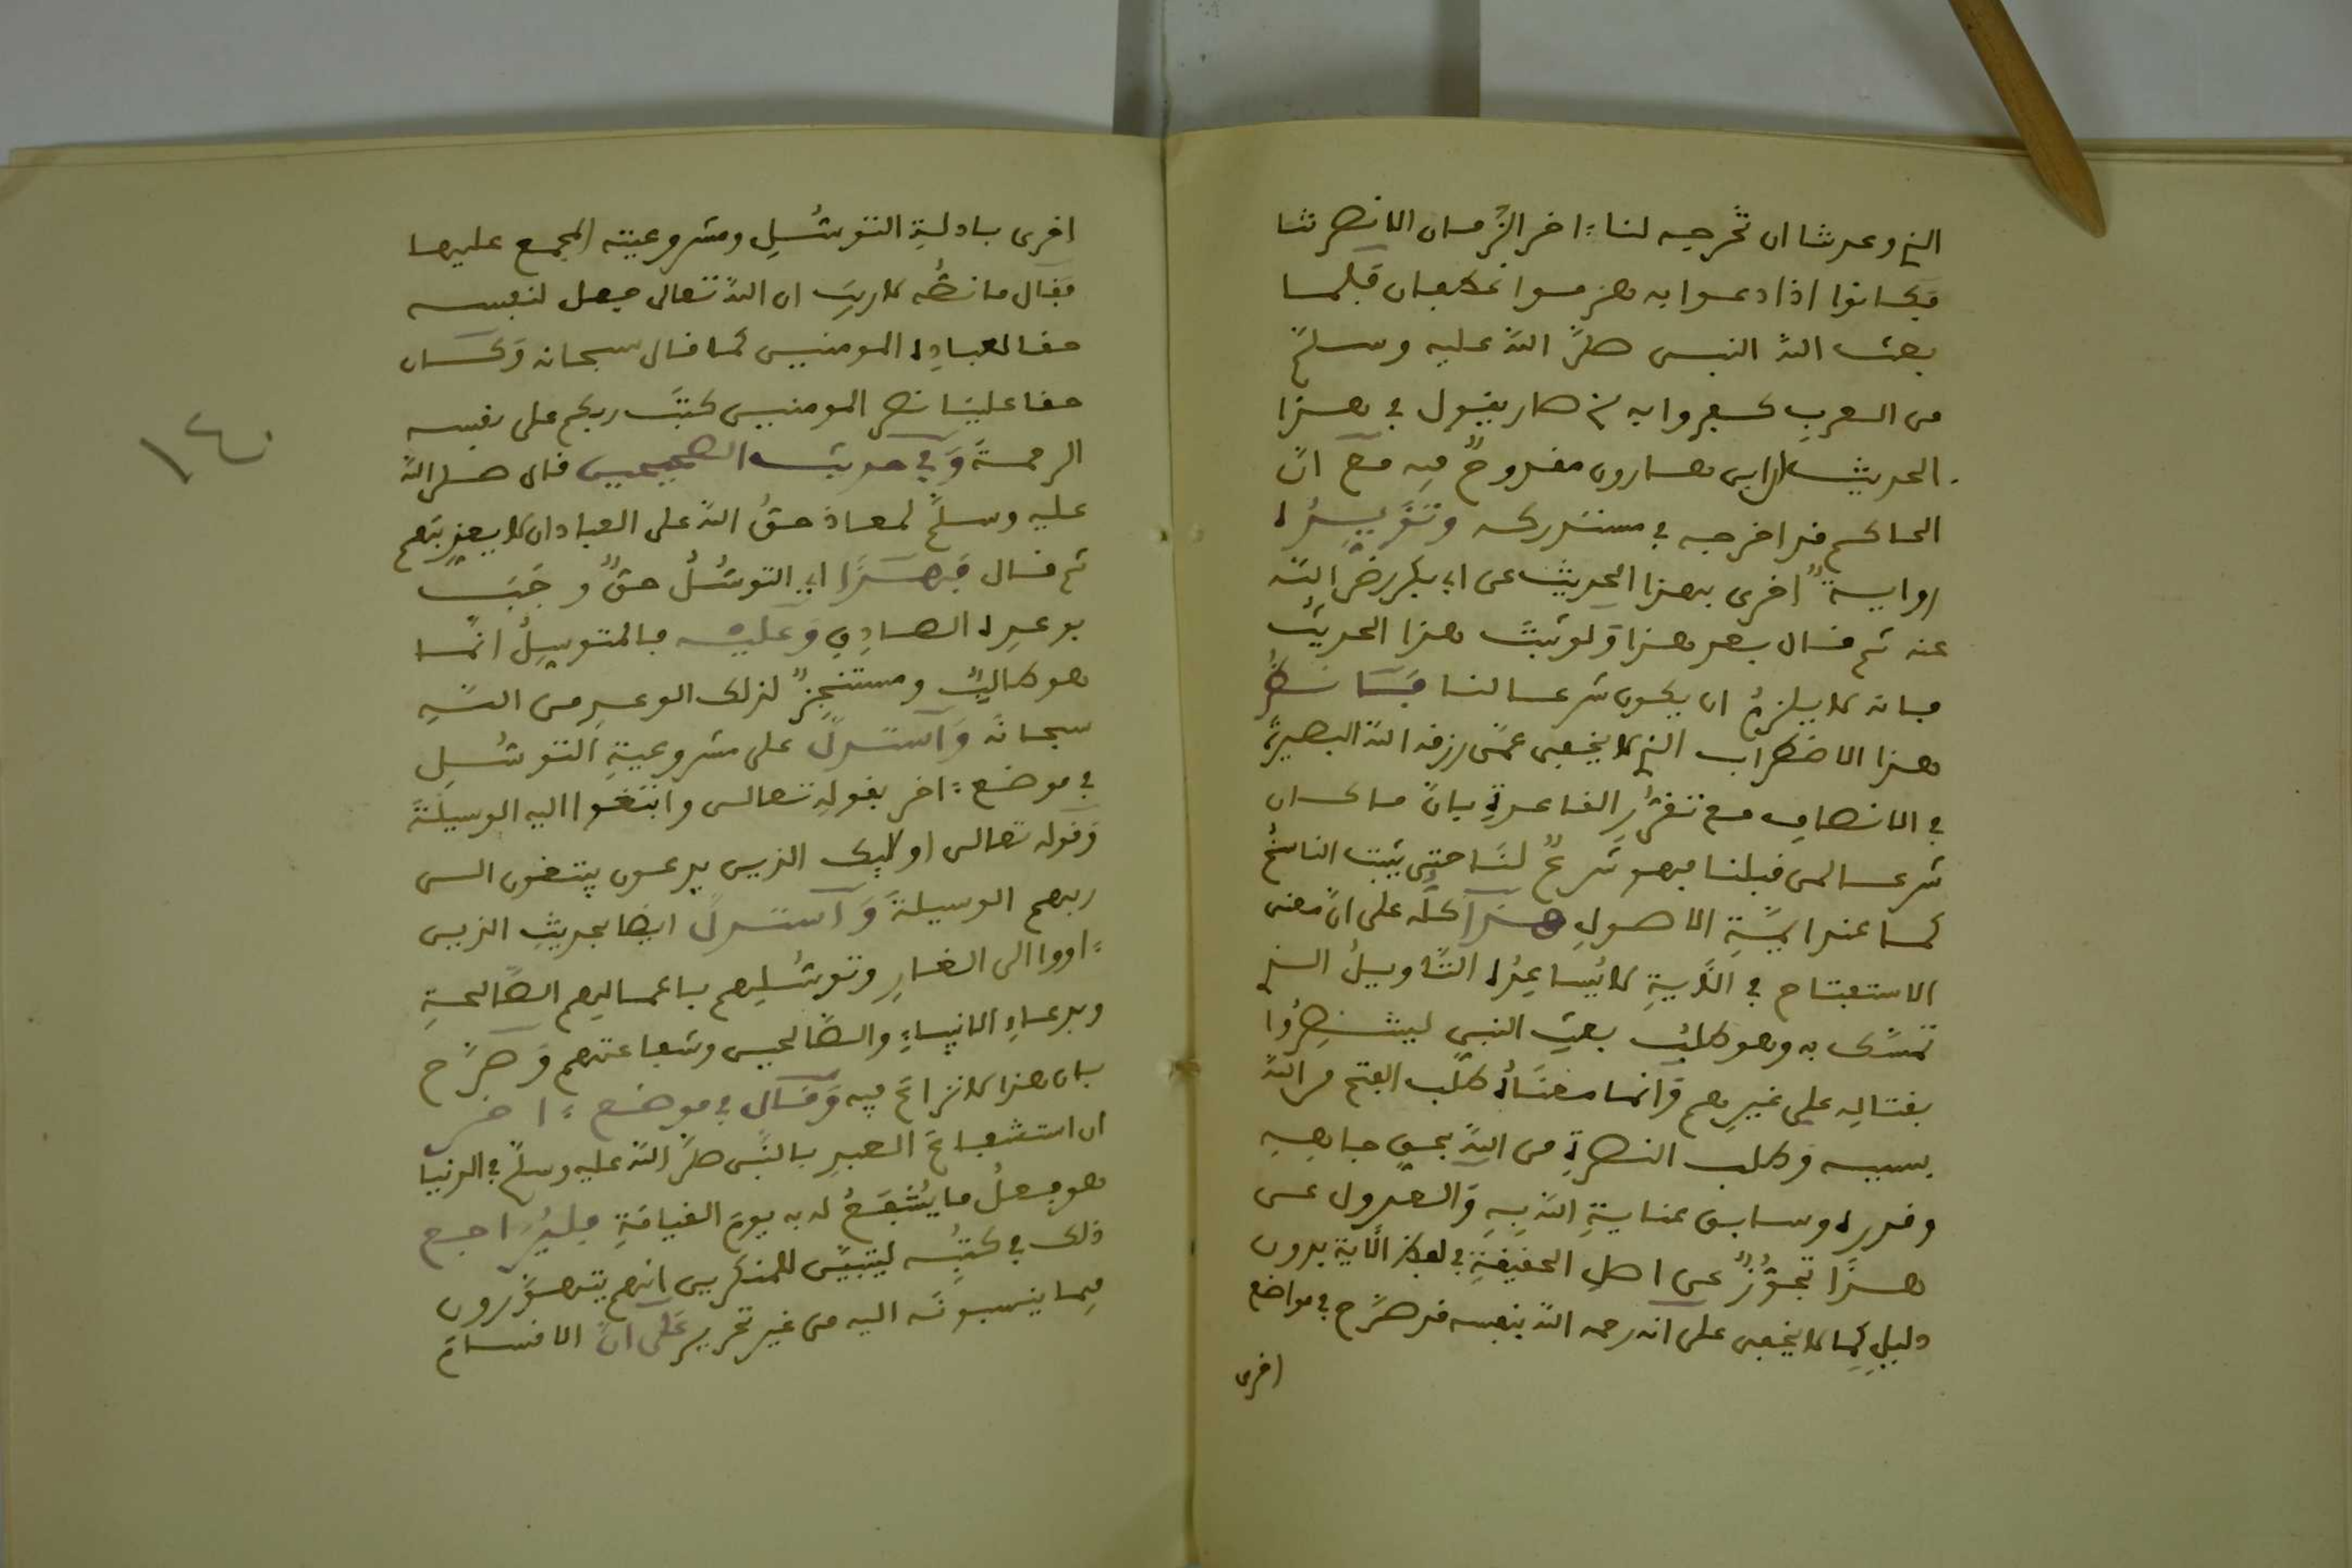 الذي وعدتنا ان تخرجه لنا ءاخر الزمان الا نصرتنا
فكانوا اذا دعوا به هزموا غطفان فلما
بعث الله النبي صلى الله عليه وسلم
من العرب كفروا به ثم صار يقول في هذا
الحديث ابن هارون مقدوح فيه مع ان
الحاكم قد اخرجه في مستدركه وتؤيده
رواية اخرى بهذا الحديث عن ابي بكر رضي الله
عنه ثم قال بعد هذا ولو ثبت هذا الحديث
فانه لا يلزم ان يكون شرعا لنا فانظر
هذا الاضطراب الذي لا يخفى عمن رزقه الله البصيرة
في الانصاف مع تقرر القاعدة بان ما كان
شرعا لمن قبلنا فهو شرع لنا حتى يثبت الناسخ
كما عند ايمة الاصول هذا كله على ان معنى
الاستفتاح في الآية لا يساعده التأويل الذي
تمسك به وهو طلب بعث النبي لينتصروا
بقتاله على غيرهم وانما معناه طلب الفتح من الله
بسببه وطلب النصرة من الله بحق جاهه
وقدره وسابق عناية الله به والعدول عن
هذا تجوز عن اصل الحقيقة في لفظ الآية بدون
دليل كما لا يخفى على انه رحمه الله بنفسه قد صرح في مواضع
اخرى
اخرى بادلة التوسل ومشروعيته المجمع عليها
فقال ما نصه لا ريب ان الله تعالى جعل لنفسه
حقا لعباده المومنين كما قال سبحانه وكان
حقا علينا نصر المومنين كتب ربكم على نفسه
الرحمة وفي حديث الصحيحين قال صلى الله
عليه وسلم لمعاذ حق الله على العباد ان لا يعذبهم
ثم قال فهذا اي التوسل حق وجب
بوعده الصادق وعليه فالمتوسل انما
هو طالب ومستنجز لذلك الوعد من الله
سبحانه واستدل على مشروعية التوسل
في موضع ءاخر بقوله تعالى وابتغوا اليه الوسيلة
وقوله تعالى اولئك الذين يدعون يبتغون الى
ربهم الوسيلة واستدل ايضا بحديث الذين
ءاووا الى الغار وتوسلهم باعمالهم الصالحة
وبدعاء الانبياء والصالحين وشفاعتهم وصرح
بان هذا لا نزاع فيه وقال في موضع ءاخر
ان استشفاع العبد بالنبي صلى الله عليه وسلم في الدنيا
هو فعل ما يشفع له به يوم القيامة فليراجع
ذلك في كتبه ليتبين للمنكرين انهم يتهورون
فيما ينسبونه اليه من غير تحرير على ان الاقسام